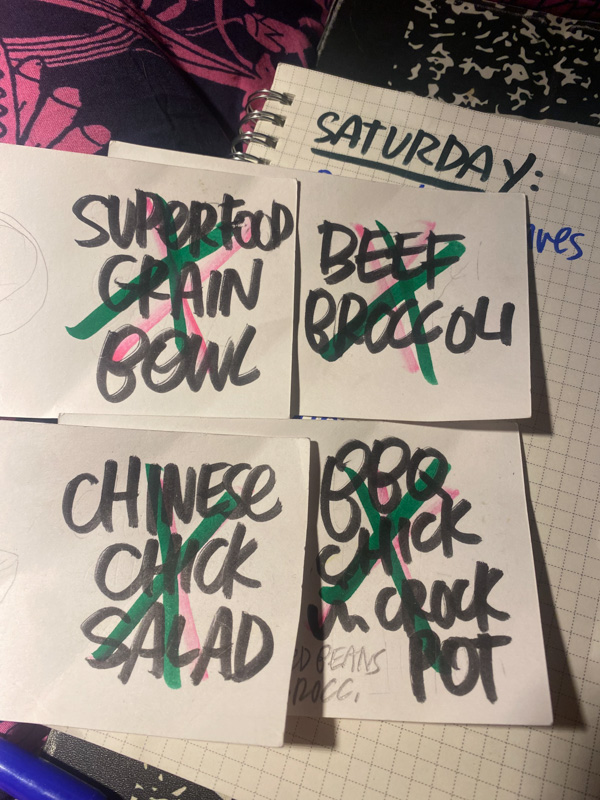 SATURDAY:
SUPERFOOD
GRAIN
BOWL
BEEF
BROCCOLI
CHINESE
CHICK
SALAD
BBQ
CHICK
in CROCK
POT
BEANS